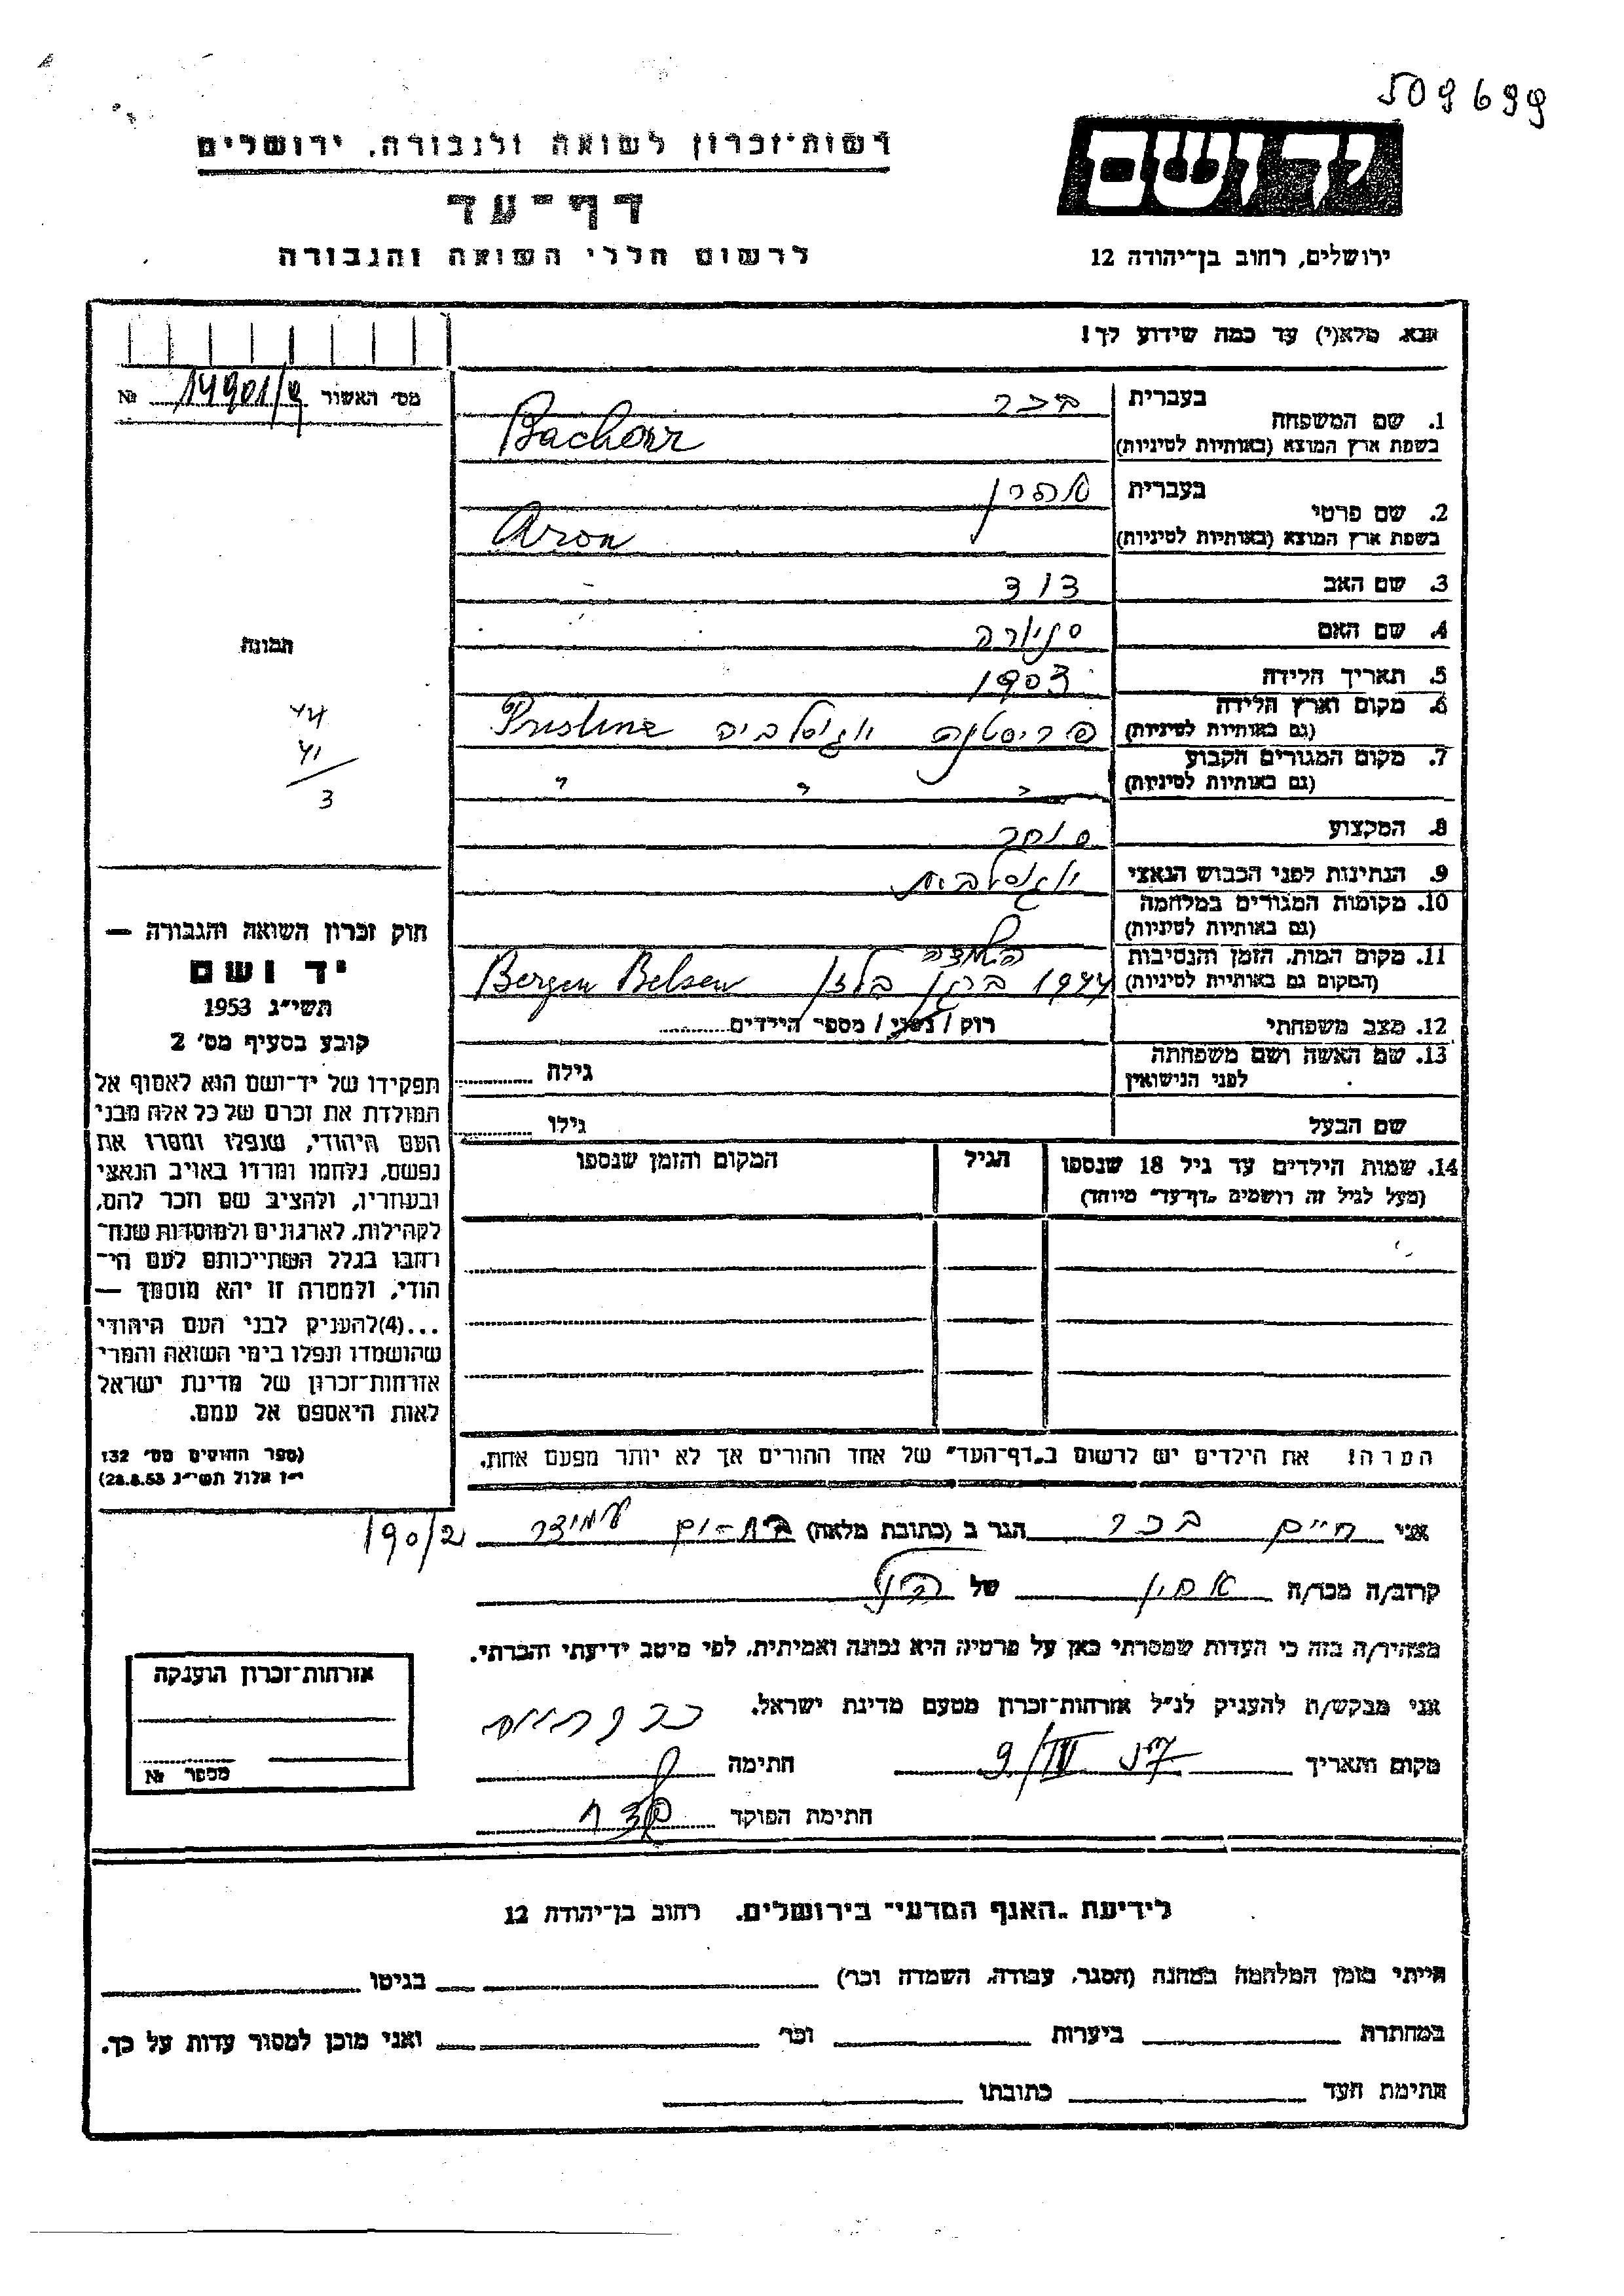 509699
רשות-זכרון לשואה ולגבורה, ירושלים
יד ושם
דף-עד
לרשום חללי השואה והגבורה
ירושלים, רחוב בן-יהודה 12
אנא, מלא(י) עד כמה שידוע לך!
מס' האשור 14901/ № 
1. שם המשפחה
בעברית בכר
בשפת ארץ המוצא (באותיות לטיניות) Bachorr
2. שם פרטי
בעברית אהרן
בשפת ארץ המוצא (באותיות לטיניות) Aron
3. שם האב דוד
4. שם האם סניורה
תמונה
5. תאריך הלידה 1903
6. מקום וארץ הלידה
(גם באותיות לטיניות) פריסטנה יוגוסלביה Pristine
44
41
3
7. מקום המגורים הקבוע
(גם באותיות לטיניות) " " "
8. המקצוע סוחר
9. הנתינות לפני הכבוש הנאצי יוגוסלבית
10. מקומות המגורים במלחמה
(גם באותיות לטיניות)
11. מקום המות, הזמן והנסיבות
(המקום גם באותיות לטיניות) 1944 ברגן בלזן Bergen Belsen
השמדה
12. מצב משפחתי רוק / נשוי / מספר הילדים
13. שם האשה ושם משפחתה
לפני הנישואין גילה
שם הבעל גילו
14. שמות הילדים עד גיל 18 שנספו
(מעל לגיל זה רושמים "דף-עד" מיוחד)
הגיל
המקום והזמן שנספו
הערה! את הילדים יש לרשום ב"דף-העד" של אחד ההורים אך לא יותר מפעם אחת.
חוק זכרון השואה והגבורה —
יד ושם
תשי"ג 1953
קובע בסעיף מס' 2
תפקידו של יד-ושם הוא לאסוף אל
המולדת את זכרם של כל אלה מבני
העם היהודי, שנפלו ומסרו את
נפשם, נלחמו ומרדו באויב הנאצי
ובעוזריו, ולהציב שם וזכר להם,
לקהילות, לארגונים ולמוסדות שנח-
רבו בגלל השתייכותם לעם הי-
הודי, ולמטרה זו יהא מוסמך —
...(4)להעניק לבני העם היהודי
שהושמדו ונפלו בימי השואה והמרי
אזרחות-זכרון של מדינת ישראל
לאות היאספם אל עמם.
(ספר החוקים מס' 132
י"ז אלול תשי"ג 28.8.53)
אני חיים בכר הגר ב (כתובת מלאה) בת-ים עמידר 190/2
קרוב/ה מכר/ה אחין של הנ"ל
מצהיר/ה בזה כי העדות שמסרתי כאן על פרטיה היא נכונה ואמיתית, לפי מיטב ידיעתי והכרתי.
אני מבקש/ת להעניק לנ"ל אזרחות-זכרון מטעם מדינת ישראל.
מקום ותאריך 9/IV 57 חתימה
חתימת הפוקד
אזרחות-זכרון הוענקה
מספר №
לידיעת "האגף המדעי" בירושלים, רחוב בן-יהודה 12
הייתי בזמן המלחמה במחנה (הסגר, עבודה, השמדה וכו') בגיטו
במחתרת ביערות וכו' ואני מוכן למסור עדות על כך.
חתימת העד כתובתו